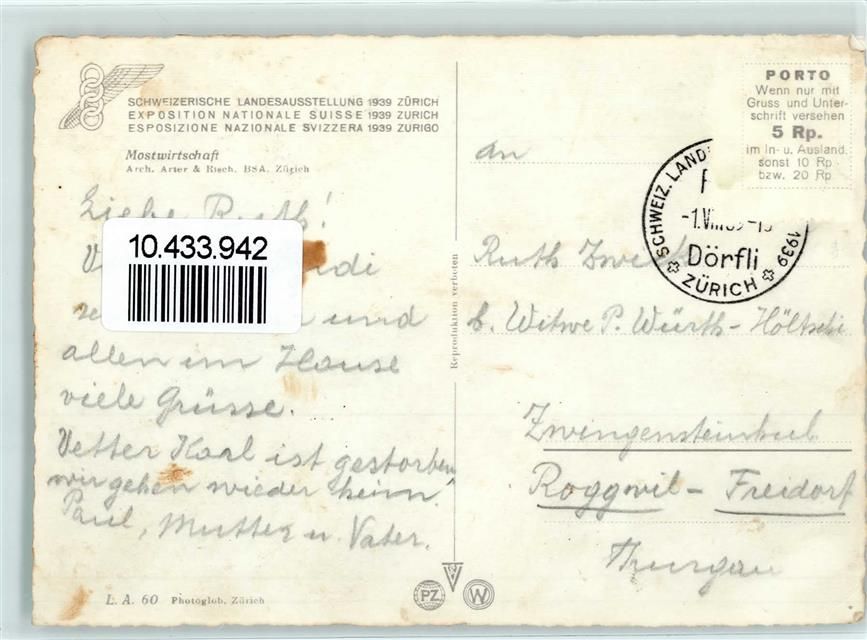 SCHWEIZERISCHE LANDESAUSSTELLUNG 1939 ZÜRICH
EXPOSITION NATIONALE SUISSE 1939 ZURICH
ESPOSIZIONE NAZIONALE SVIZZERA 1939 ZURIGO
Mostwirtschaft
Arch. Arter & Risch, BSA, Zürich
Liebe Ruth!
10.433.942
und
allen im Hause
viele Grüsse.
Vetter Karl ist gestorben
wir gehen wieder heim.
Paul, Mutter u. Vater.
L. A. 60 Photoglob, Zürich
Reproduktion verboten
PZ
W
PORTO
Wenn nur mit
Gruss und Unter-
schrift versehen
5 Rp.
im In- u. Ausland.
sonst 10 Rp.
bzw. 20 Rp.
SCHWEIZ. LAND
1939
Dörfli
ZÜRICH
an
Ruth
b. Witwe P. Würth-
Roggwil - Freidorf
Thurgau